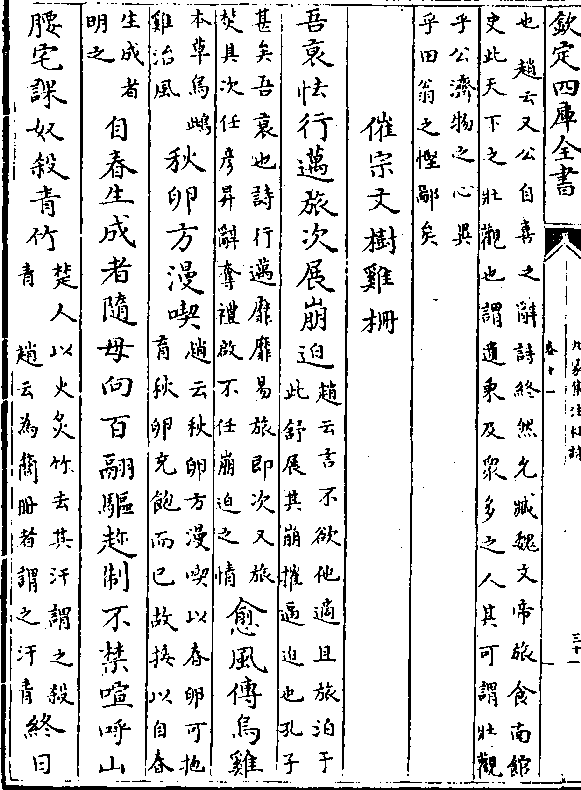 欽定四庫全書
卷十一
三十一
也 趙云又公自喜之辭詩終然允臧魏文帝旅食南館
史此天下之壯觀也謂遺秉及眾多之人其可謂壯觀
乎公濟物之心異
乎田翁之慳鄙矣
催宗文樹雞柵
吾衰怯行邁旅次展崩迫
趙云言不欲他適且旅泊于
此舒展其崩摧逼迫也孔子
甚矣吾衰也詩行邁靡靡易旅即次又旅
焚其次任彥昇辭奪禮啟不任崩迫之情
愈風傳烏雞
本草烏雌
雞治風
秋卵方漫喫
趙云秋卵方漫喫以春卵可抱
育秋卵充飽而已故接以自春
生成者
明之
自春生成者隨母向百翮驅趁制不禁喧呼山
腰宅課奴殺青竹
楚人以火炙竹去其汗謂之殺
青 趙云為簡冊者謂之汗青
終日